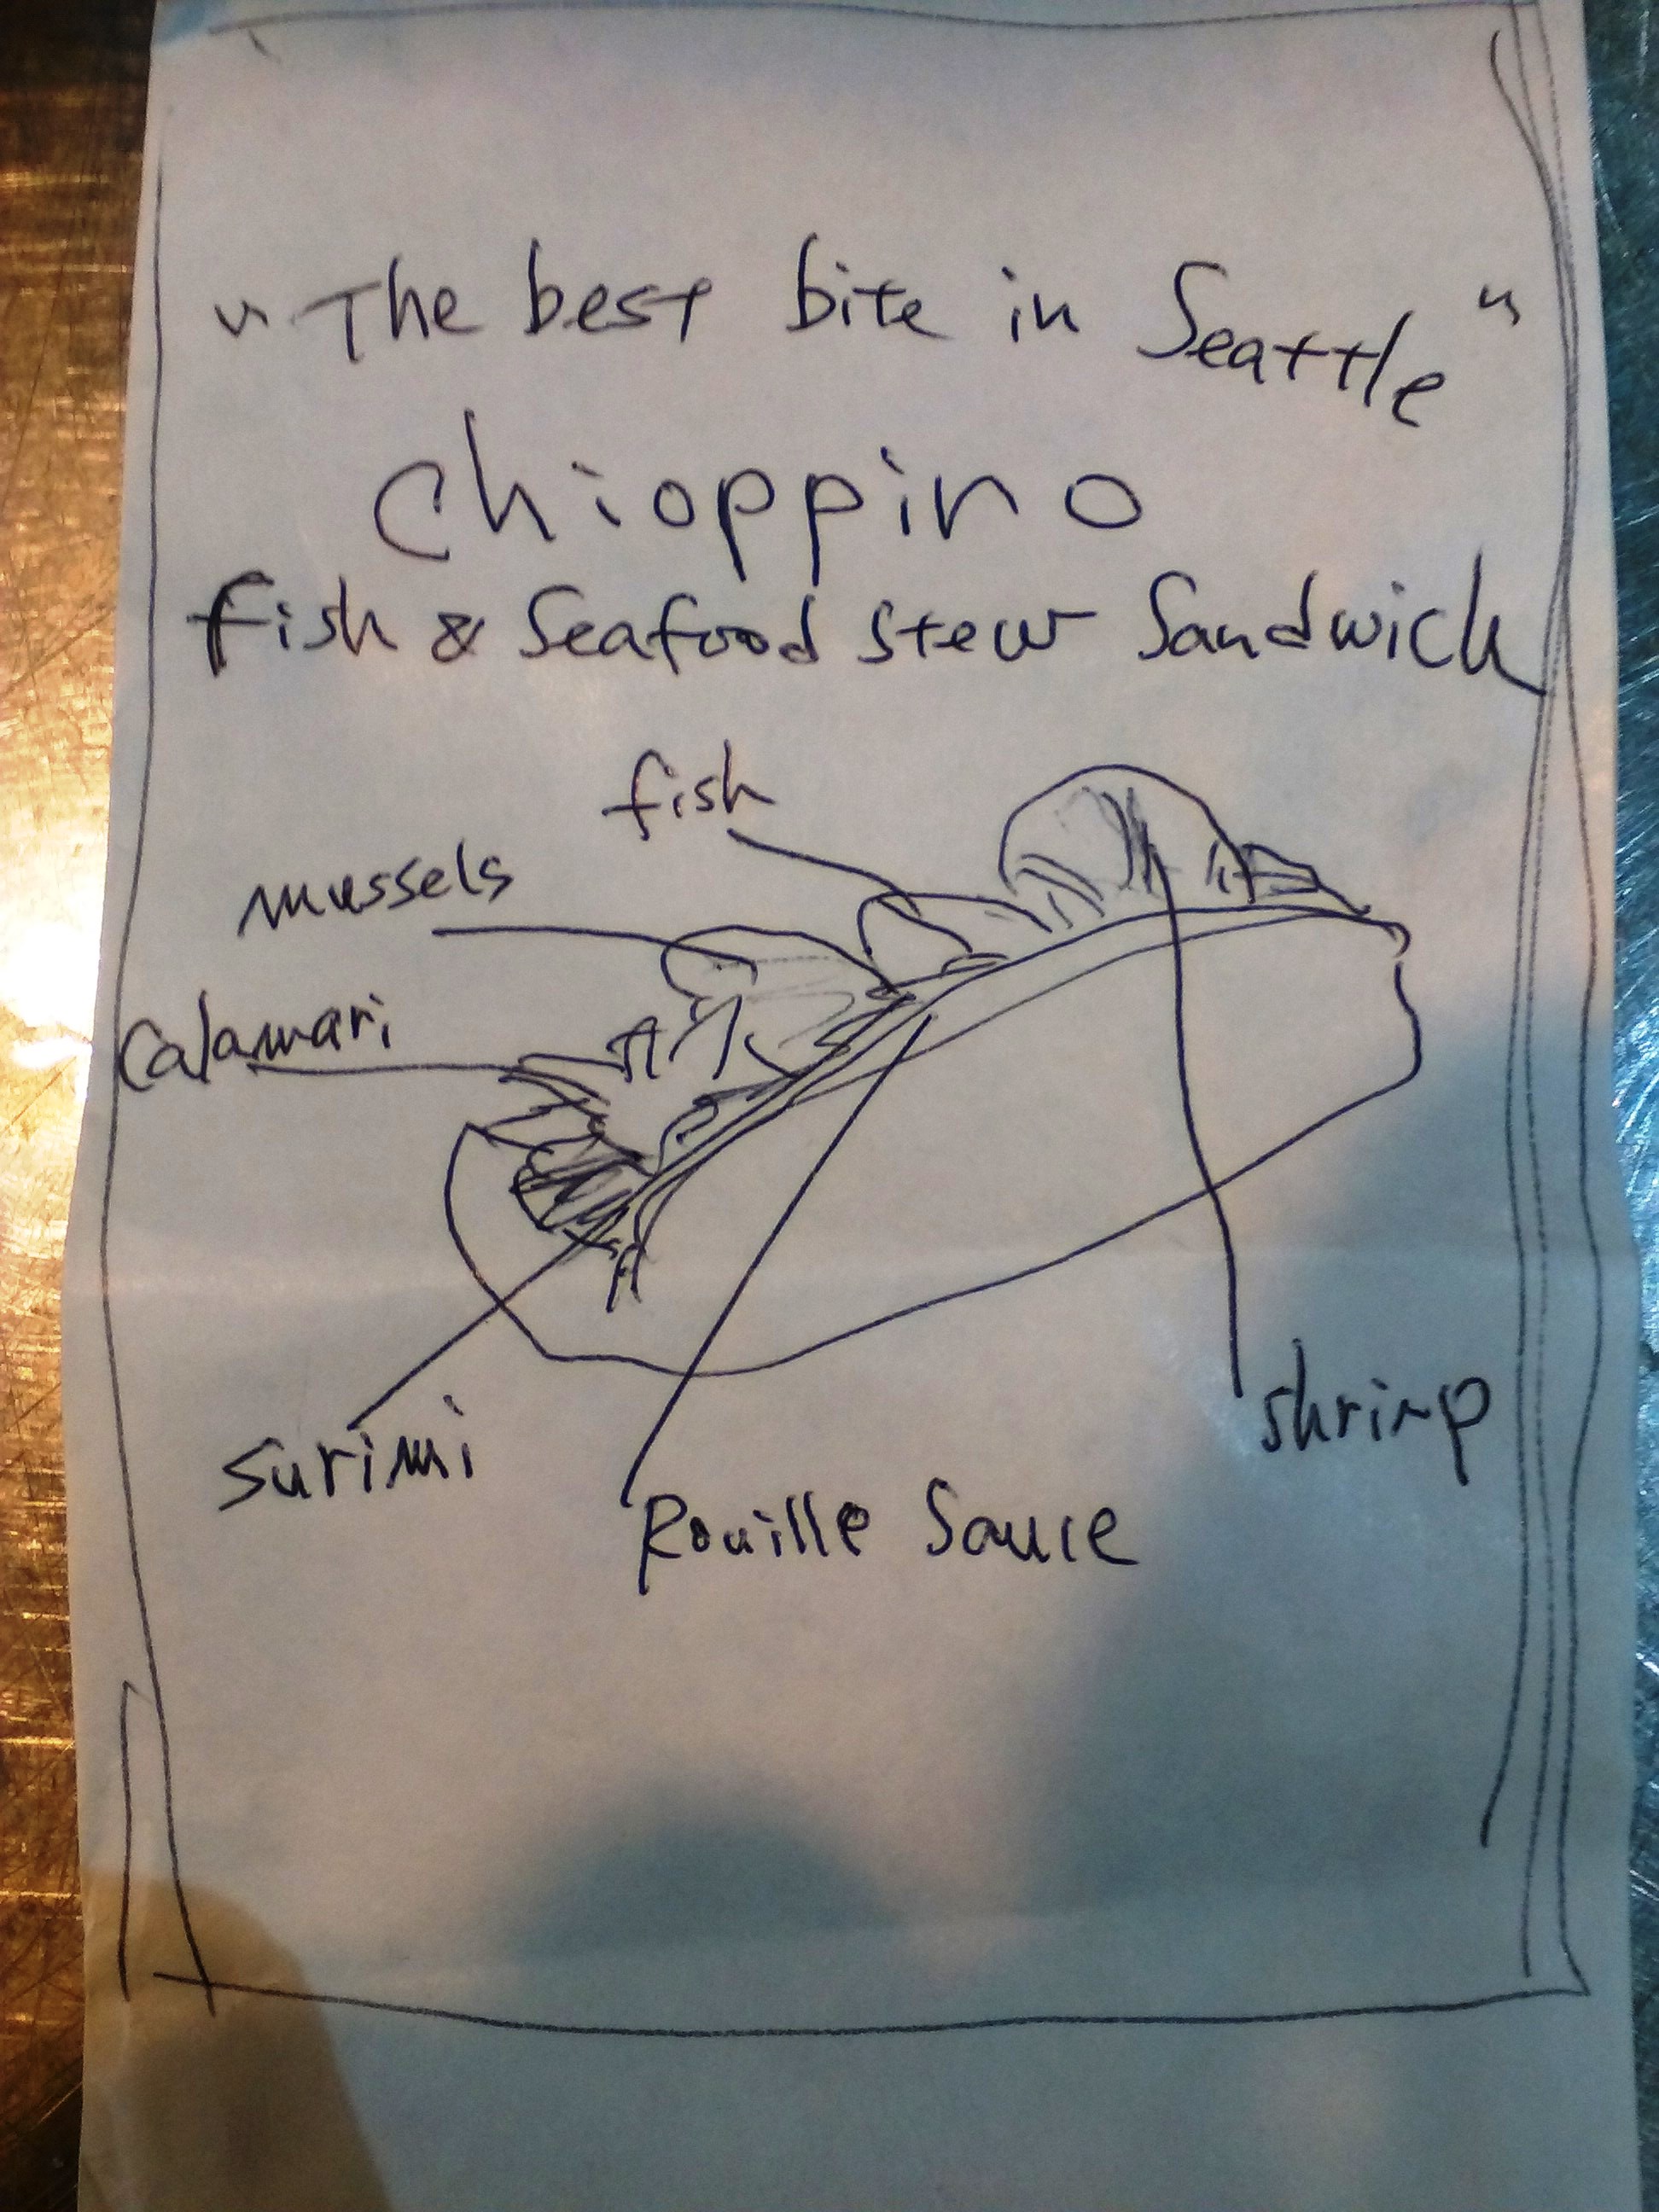 "The best bite in Seattle"
Chioppino
fish & Seafood stew Sandwich
fish
mussels
Calamari
surimi
Rouille Sauce
shrimp